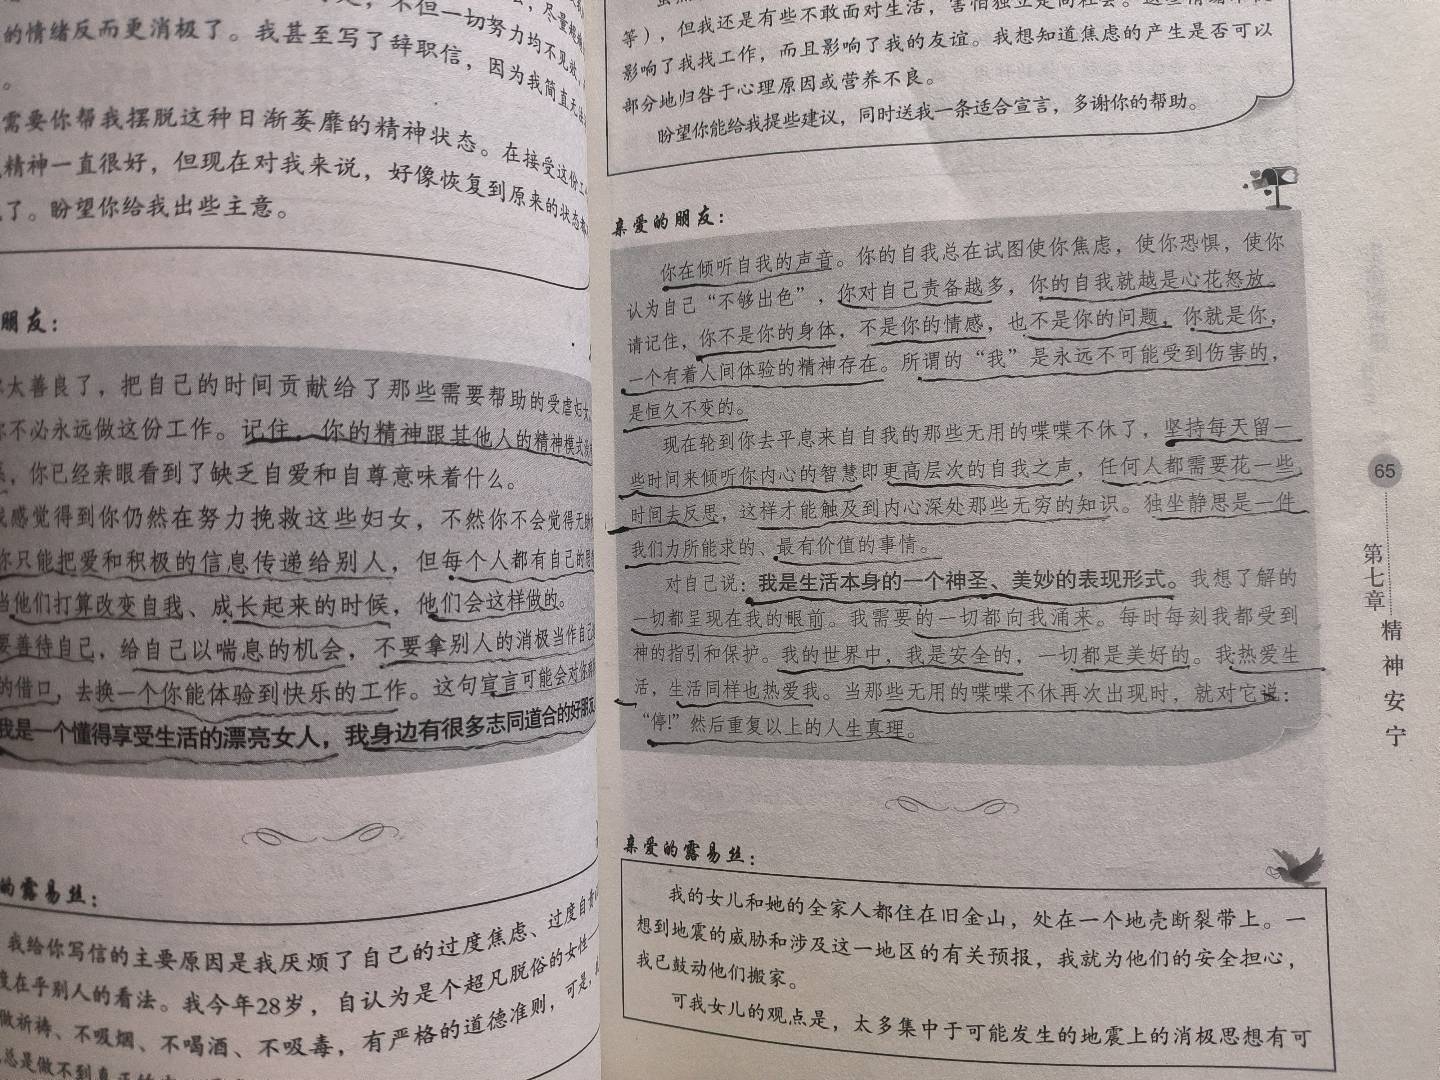 的情绪反而更消极了。我甚至写了辞职信，因为我简直无法
。
需要你帮我摆脱这种日渐萎靡的精神状态。在接受这份工
精神一直很好，但现在对我来说，好像恢复到原来的状态
了。盼望你给我出些主意。
朋友：
太善良了，把自己的时间贡献给了那些需要帮助的受虐妇女
你不必永远做这份工作。记住，你的精神跟其他人的精神模式
，你已经亲眼看到了缺乏自爱和自尊意味着什么。
我感觉得到你仍然在努力挽救这些妇女，不然你不会觉得无
你只能把爱和积极的信息传递给别人，但每个人都有自己的
当他们打算改变自我、成长起来的时候，他们会这样做的。
要善待自己，给自己以喘息的机会，不要拿别人的消极当作自己
的借口，去换一个你能体验到快乐的工作。这句宣言可能会对你
我是一个懂得享受生活的漂亮女人，我身边有很多志同道合的好朋友
的露易丝：
我给你写信的主要原因是我厌烦了自己的过度焦虑、过度自责
度在乎别人的看法。我今年28岁，自认为是个超凡脱俗的女性
做祈祷、不吸烟、不喝酒、不吸毒，有严格的道德准则，可是，
总是做不到真正的
等），但我还是有些不敢面对生活，害怕独立走向社会。这些情绪
影响了我找工作，而且影响了我的友谊。我想知道焦虑的产生是否可以
部分地归咎于心理原因或营养不良。
盼望你能给我提些建议，同时送我一条适合宣言，多谢你的帮助。
亲爱的朋友：
你在倾听自我的声音。你的自我总在试图使你焦虑，使你恐惧，使你
认为自己“不够出色”，你对自己责备越多，你的自我就越是心花怒放。
请记住，你不是你的身体，不是你的情感，也不是你的问题，你就是你，
一个有着人间体验的精神存在。所谓的“我”是永远不可能受到伤害的，
是恒久不变的。
现在轮到你去平息来自自我的那些无用的喋喋不休了，坚持每天留一
些时间来倾听你内心的智慧即更高层次的自我之声，任何人都需要花一些
时间去反思，这样才能触及到内心深处那些无穷的知识。独坐静思是一件
我们力所能求的、最有价值的事情。
对自己说：我是生活本身的一个神圣、美妙的表现形式。我想了解的
一切都呈现在我的眼前。我需要的一切都向我涌来。每时每刻我都受到
神的指引和保护。我的世界中，我是安全的，一切都是美好的。我热爱生
活，生活同样也热爱我。当那些无用的喋喋不休再次出现时，就对它说：
“停!”然后重复以上的人生真理。
亲爱的露易丝：
我的女儿和她的全家人都住在旧金山，处在一个地壳断裂带上。一
想到地震的威胁和涉及这一地区的有关预报，我就为他们的安全担心，
我已鼓动他们搬家。
可我女儿的观点是，太多集中于可能发生的地震上的消极思想有可
65
第七章
精神安宁